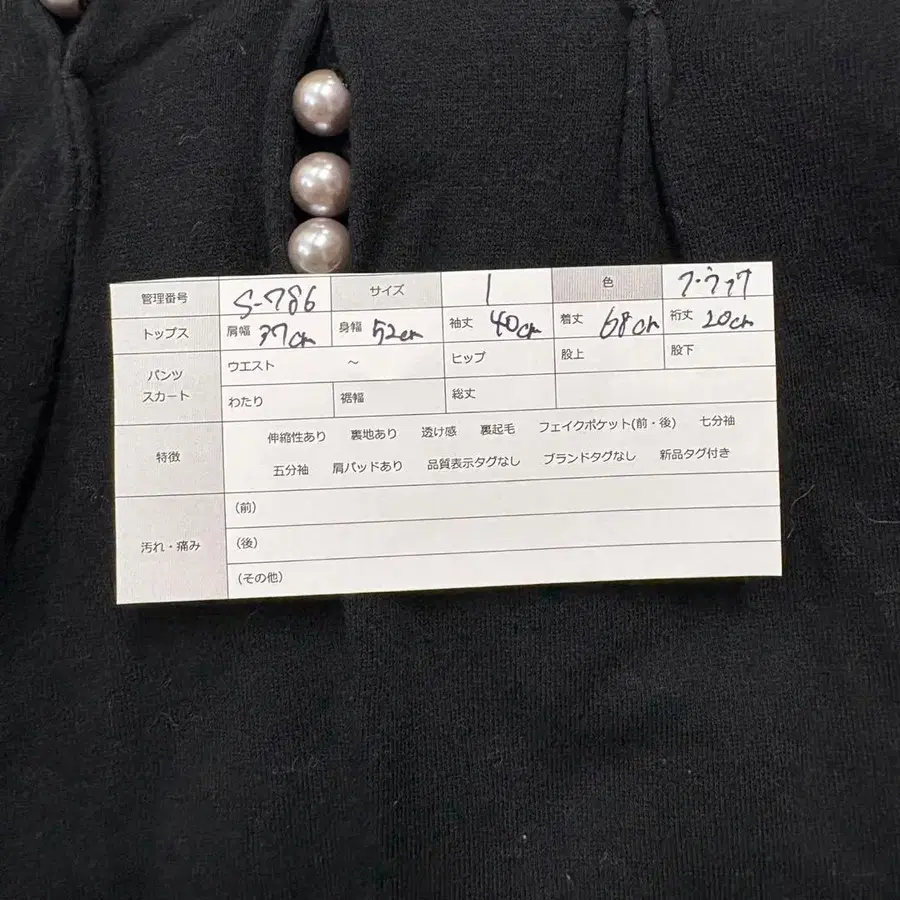 管理番号 S-786 サイズ 1 色 ブラック
トップス 肩幅 37cm 身幅 52cm 袖丈 40cm 着丈 68cm 裄丈 20cm
パンツ スカート ウエスト ～ ヒップ 股上 股下
わたり 裾幅 総丈
特徴 伸縮性あり 裏地あり 透け感 裏起毛 フェイクポケット(前・後) 七分袖
五分袖 肩パッドあり 品質表示タグなし ブランドタグなし 新品タグ付き
汚れ・痛み (前)
(後)
(その他)